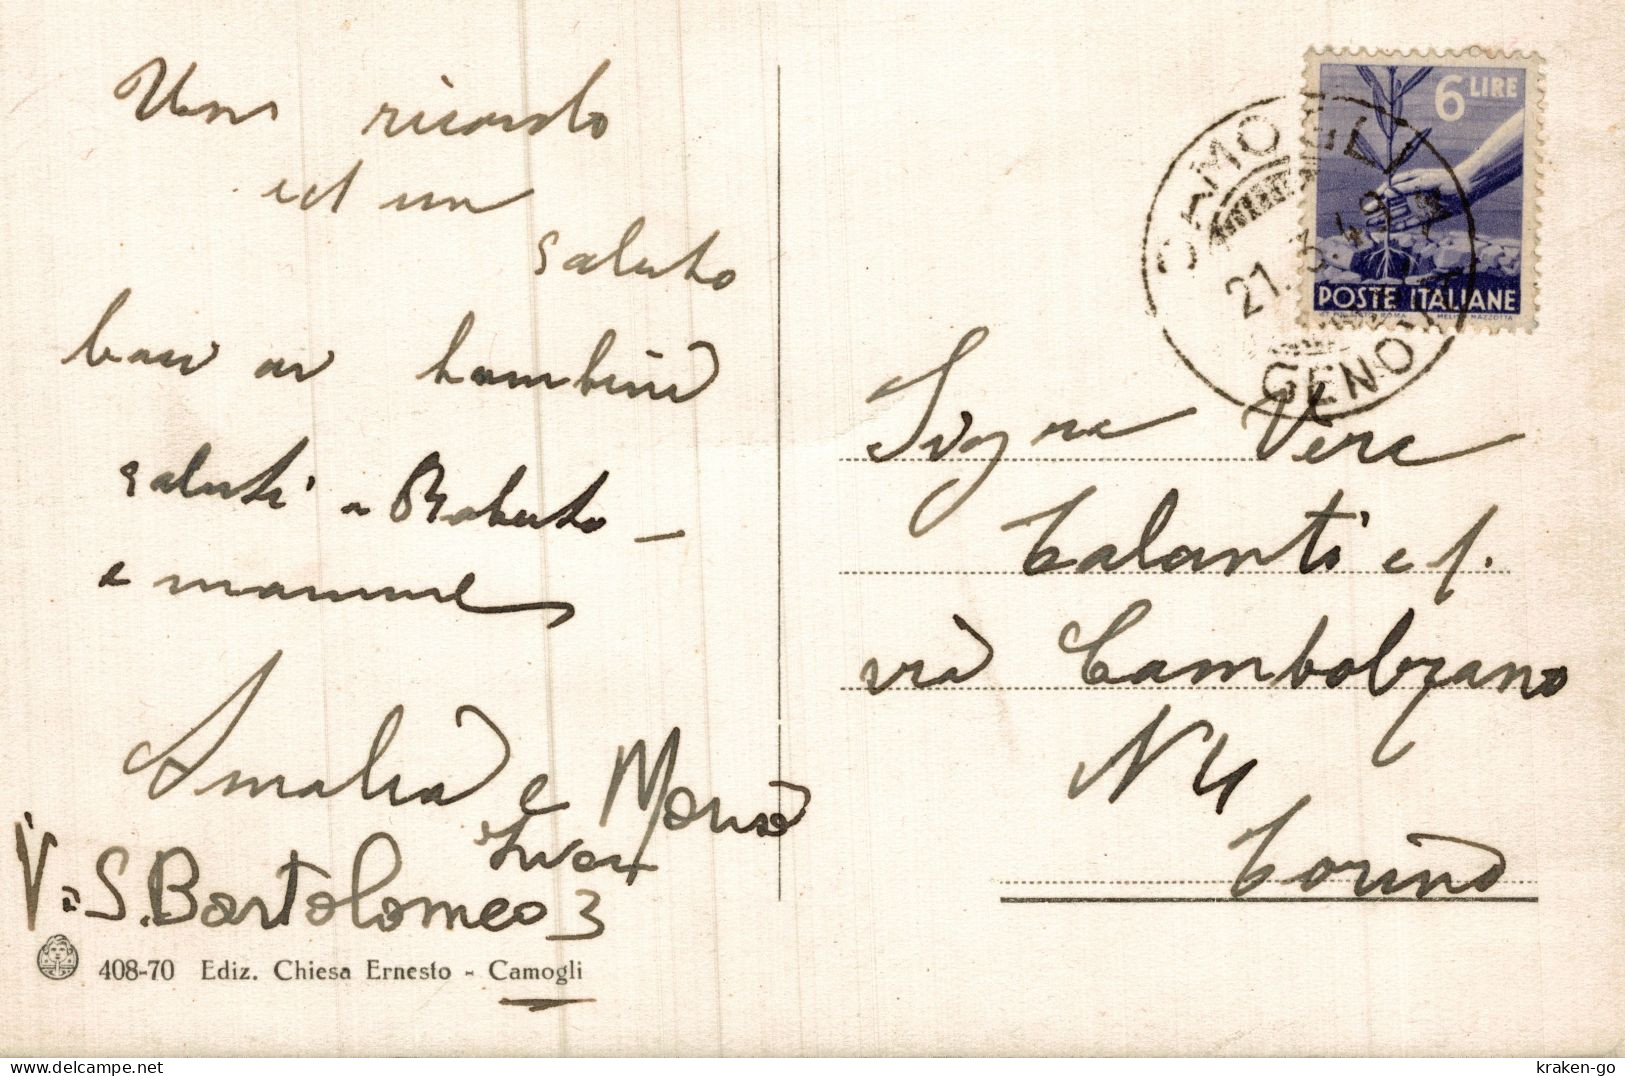 Un ricordo
ed un
saluto
baci ai bambini
saluti a Roberto -
e mamme
Amalia e Maria
V. S. Bartolomeo 3
408-70 Ediz. Chiesa Ernesto - Camogli
6 LIRE
POSTE ITALIANE
CAMOGLI
21. 3. 49
GENOVA
Sigra Vera
Talanti e f.
via Cambobzano
N 4
Torino
kraken-go